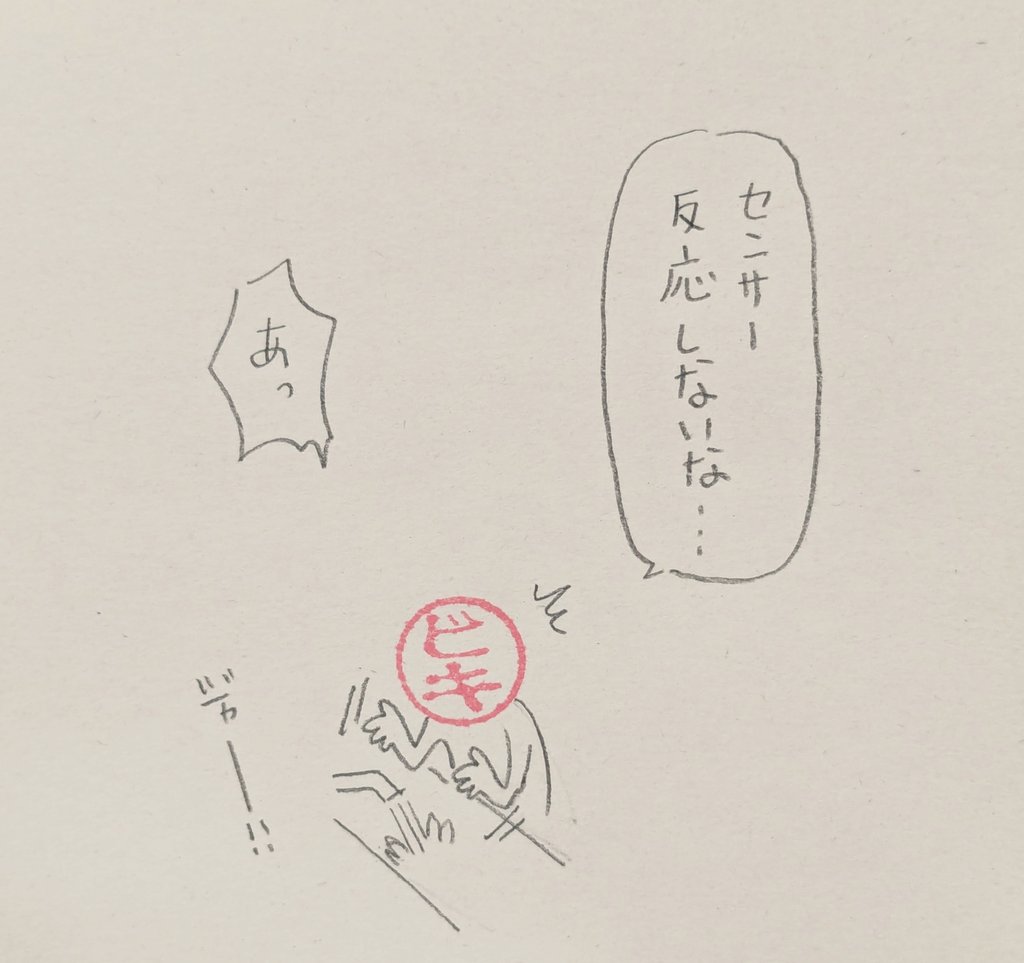 センサー
反応しないな…
あっ
ビキ
ジャー…